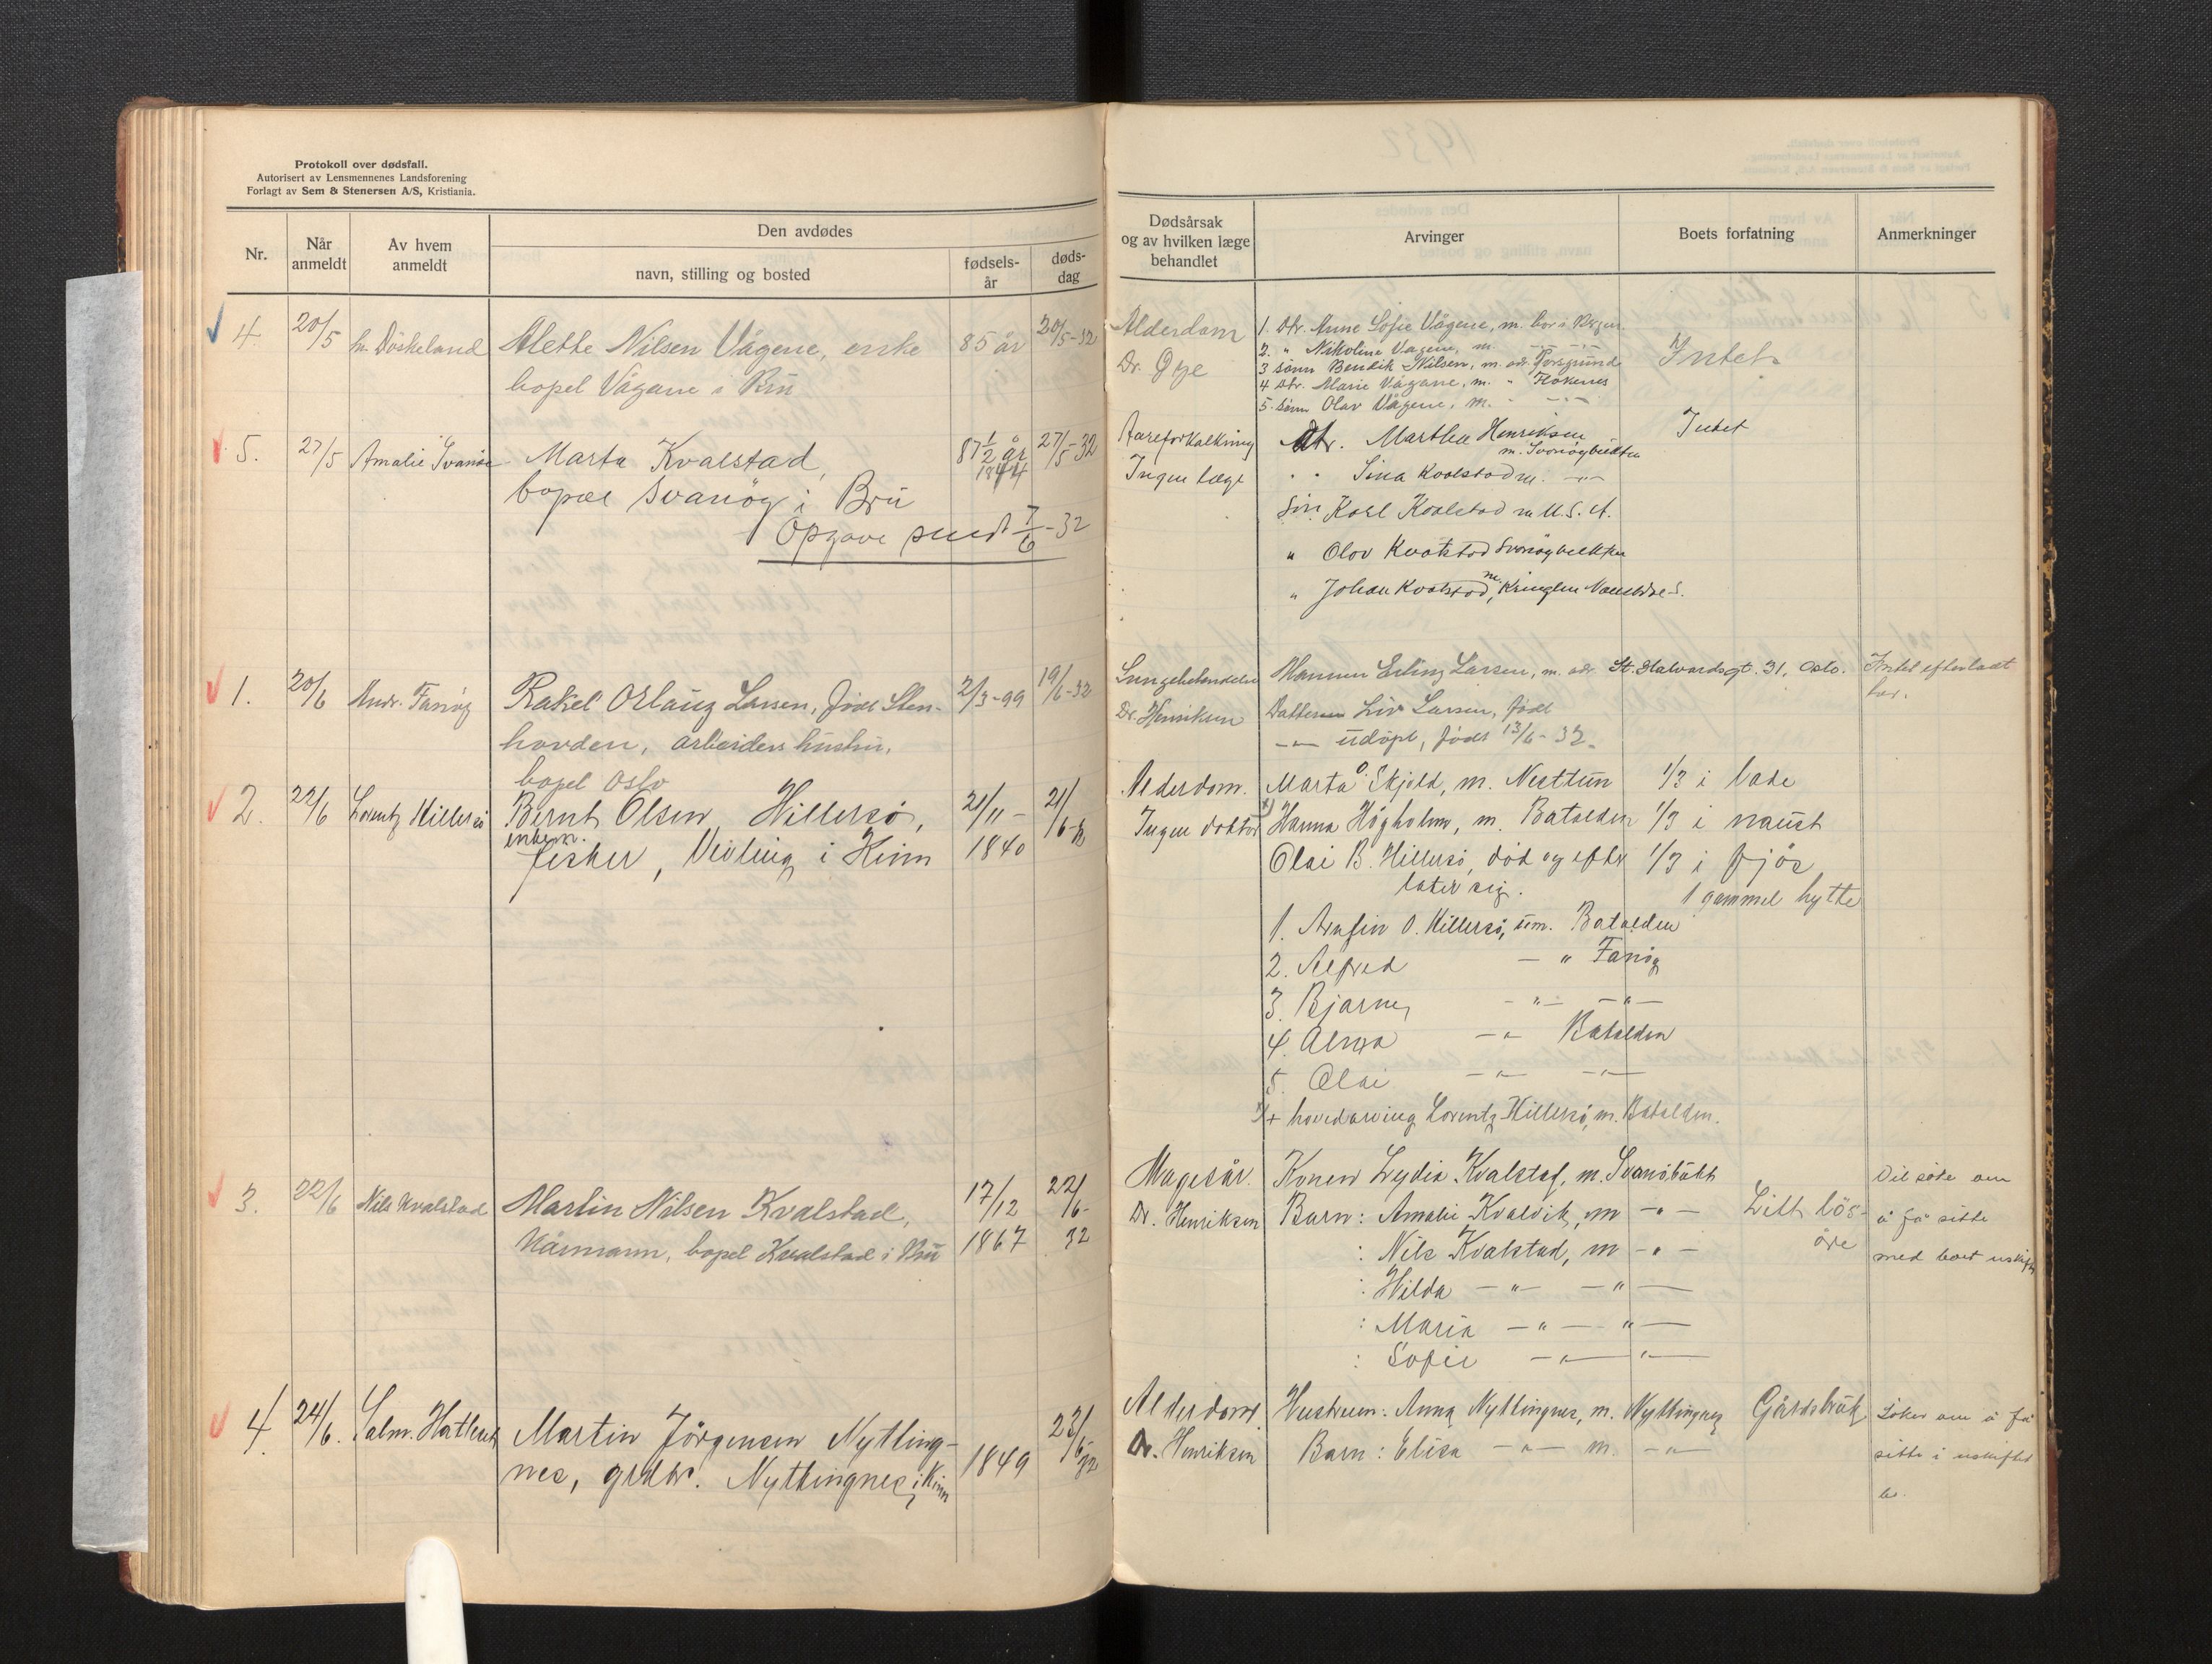 Protokoll over dødsfall.
Autorisert av Lensmennenes Landsforening
Forlagt av Sem & Stenersen A/S, Kristiania.
Nr.
Når anmeldt
Av hvem anmeldt
Den avdødes
navn, stilling og bosted
fødsels-år
døds-dag
4. 20/5 Döskeland Alette Nilsen Vågene, enke 85 år 20/5-32
bopel Vågane i Bru
5. 27/5 Amalie Svanøe Marta Kvalstad, 87 1/2 år 27/5-32
1844
bopæl Svanöy i Bru
Opgave sendt 7/6-32
1. 20/6 Andr. Fanöy Rakel Oslaug Larsen, född Sten- 2/3-99 19/6-32
hovden, arbeiders hustru,
bopel Oslo
2. 22/6 Lorentz Hillersö Bernt Olsen Hillersö, 21/11- 21/6-32
enkem.
fisker, Veiling i Kinn 1840
3. 22/6 Nils Kvalstad Martin Nilsen Kvalstad, 17/12 22/6-
Kårmann, bopel Kvalstad i Bru 1867 32
4. 24/6. Salm. Hatleset Martin Jörgensen Nytting- 23/6-32
nes, grdbr. Nyttingnes i Kinn 1849
Dødsårsak
og av hvilken læge
behandlet
Arvinger
Boets forfatning
Anmerkninger
Alderdom 1. Dtr. Anne Sofie Vågene, m. bor i Bergen
2. " Nikoline Vagene, m. -"-
Dr. Gje 3 sönn Bendik Nilsen, m. adr. Porsgrund Intet
4 Dtr. Marie Vågane, m. " Flokenes
5. Sönn Olav Vågene, m. " -"-
Aareforkalkning Dtr. Marthea Henriksen Intet
m. Svanøybukten
Ingen læge " Sina Kvalstad m. -"-
Sön Karl Kvalstad m U.S.A.
" Olav Kvalstad Svanøybukten
" Johan Kvalstad, m. Kringlen Naustdal S.
Lungebetendelse Mannen Erling Larsen, m. adr. St. Halvardsgt. 31, Oslo. Intet efterladt
Dr. Henriksen Datteren Liv Larsen, född
-"- udöpt, född 13/6-32.
Alderdom. Marta O. Skjold, m. Nesttun 1/3 i lade
Ingen doktor x) Hanna Högholm, m. Batalden 1/3 i naust
Olai B. Hillersö, död og efter 1/3 i fjös
later sig.
1 gammel hytte
1. Arnfin O. Hillersö, um. Batalden
2. Alfred - " Fanöy
3. Bjarne, - " - - " -
4. Alma - " - Batalden
5. Olai - " - - " -
x)+ hovedarving Lorentz Hillersö, m. Batalden.
Magesår. Konen Lydia Kvalstad, m. Svanöbukt Vil søke om
Dr. Henriksen Barn: Amalie Kvalvik, m - " - Litt lös- å få sitte
: Nils Kvalstad, m - " - öre med boet uskiftet
: Hilda - " - - " -
: Maria - " - - " -
: Sofie - " - - " -
Alderdom Hustruen: Anna Nyttingnes, m. Nyttingnes Gårdsbruk Söker om å få
Dr. Henriksen Barn: Elisa - " - m. - " - sitte i uskiftet
bo.